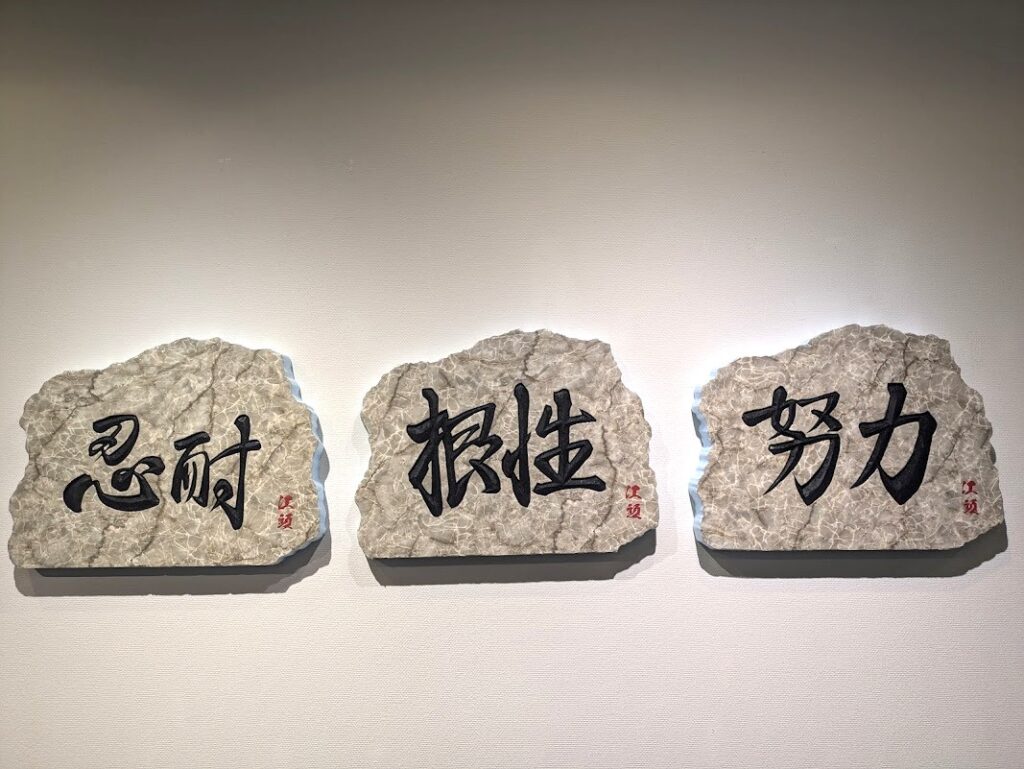 忍耐
江頭
根性
江頭
努力
江頭